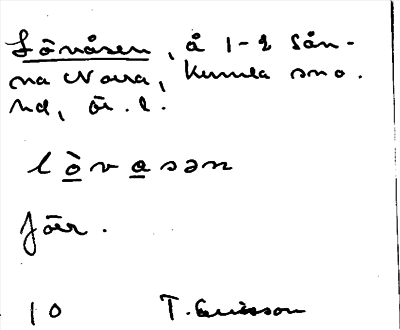 Lövåsen, å 1-2 Sån-
na Nora, Kumla sno.
nd, ör. l.
lòvasən
för.
10 T. Ericsson